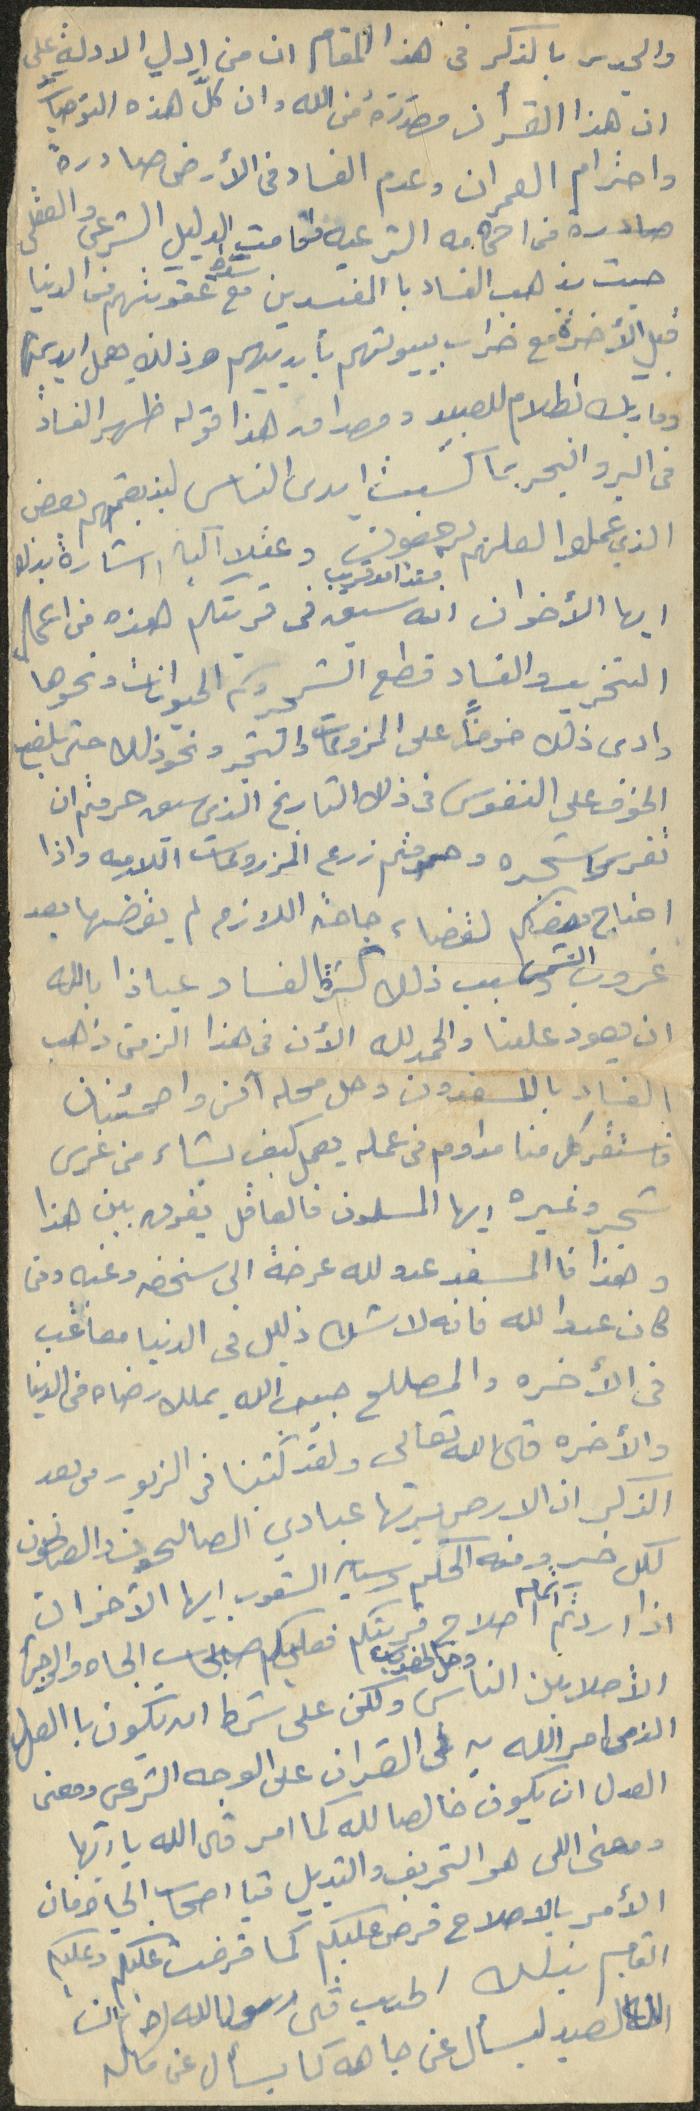 والجدير بالذكر فى هذا المقام ان من ادل الادلة على
ان هذا القرأن مصدره من الله وان كل هذه التوصيات
واحترام العمران وعدم الفساد فى الأرض صادرة
صادرة فى احكامه الشرعيه فقامت الدليل الشرعي والعقلى
حيث يذهب الفساد با المفسدين مع شدة عقوبتهم فى الدنيا
قبل الأخرة مع خراب بييوتهم بأيديهم وذلك بعمل ايديهم
وما ربك بظلام للعبيد ومصداق هذا قوله ظهر الفساد
فى البر والبحر بما كسبت ايدى الناس ليذيقهم بعض
الذي عملوا لعلهم يرجعون وعقلا اشارة بذلك
ايها الأخوان انه سبق فى قريتكم هذه من اعمال
التخريب والفساد قطع الشجر وكم الحيوانات ونحوها
وادى ذلك خوفاً على المزروعات والشجر ونحو ذلك حتى بلغ
الخوف على النفوس فى ذلك التاريخ الذى سبق حرمتم ان
تغرس شجره وحرمتم زرع المزروعات اللازمه واذا
احتاج بعضكم لقضاء حاجته اللازم لم يقرضها بعد
غروب الشمس وسبب ذلك كثرة الفساد عياذا بالله
ان يعود علينا والحمد لله الأن فى هذا الزمن ذهب
الفساد بالمفسدون وحل محله أمن واطمئنان
فاستقر كل منا مداوم فى عمله يعمل كيف يشاء من غرس
شجر وغيره ايها المسلمون فالعاقل يفرق بين هذا
وهذا فالمفسد عدو لله عرضة الى سخطه وغضبه ومن
كان عدوا لله فانه لا شك ذليل فى الدنيا معاقب
فى الأخره والمصلح حبيب الله يملك رضاه فى الدنيا
والأخره قال الله تعالى ولقد كتبنا فى الزبور من بعد
الذكر ان الارض يرثها عبادي الصالحون والصالحون
لكل خير ومنه الحكم وسياسة الشعوب ايها الأخوان
اذا اردتم اتمام اصلاح قريتكم فعليكم
الأصلا بين الناس ولكن على شرط ان تكون با العدل
الذى امر الله به فى القرأن على الوجه الشرعى ومعنى
العدل ان يكون خالصا لله كما امر قال الله
ومعنى اللى هو التحريف والتبديل فيا اصحاب الجاه فان
الأمر بالاصلاح فرض عليكم كما فرضت عليكم وعليكم
القيام بذلك الحديث قال رسول الله (ص) ان
الله العبد ليسأل عن جاهه كما يسأل عن ماله